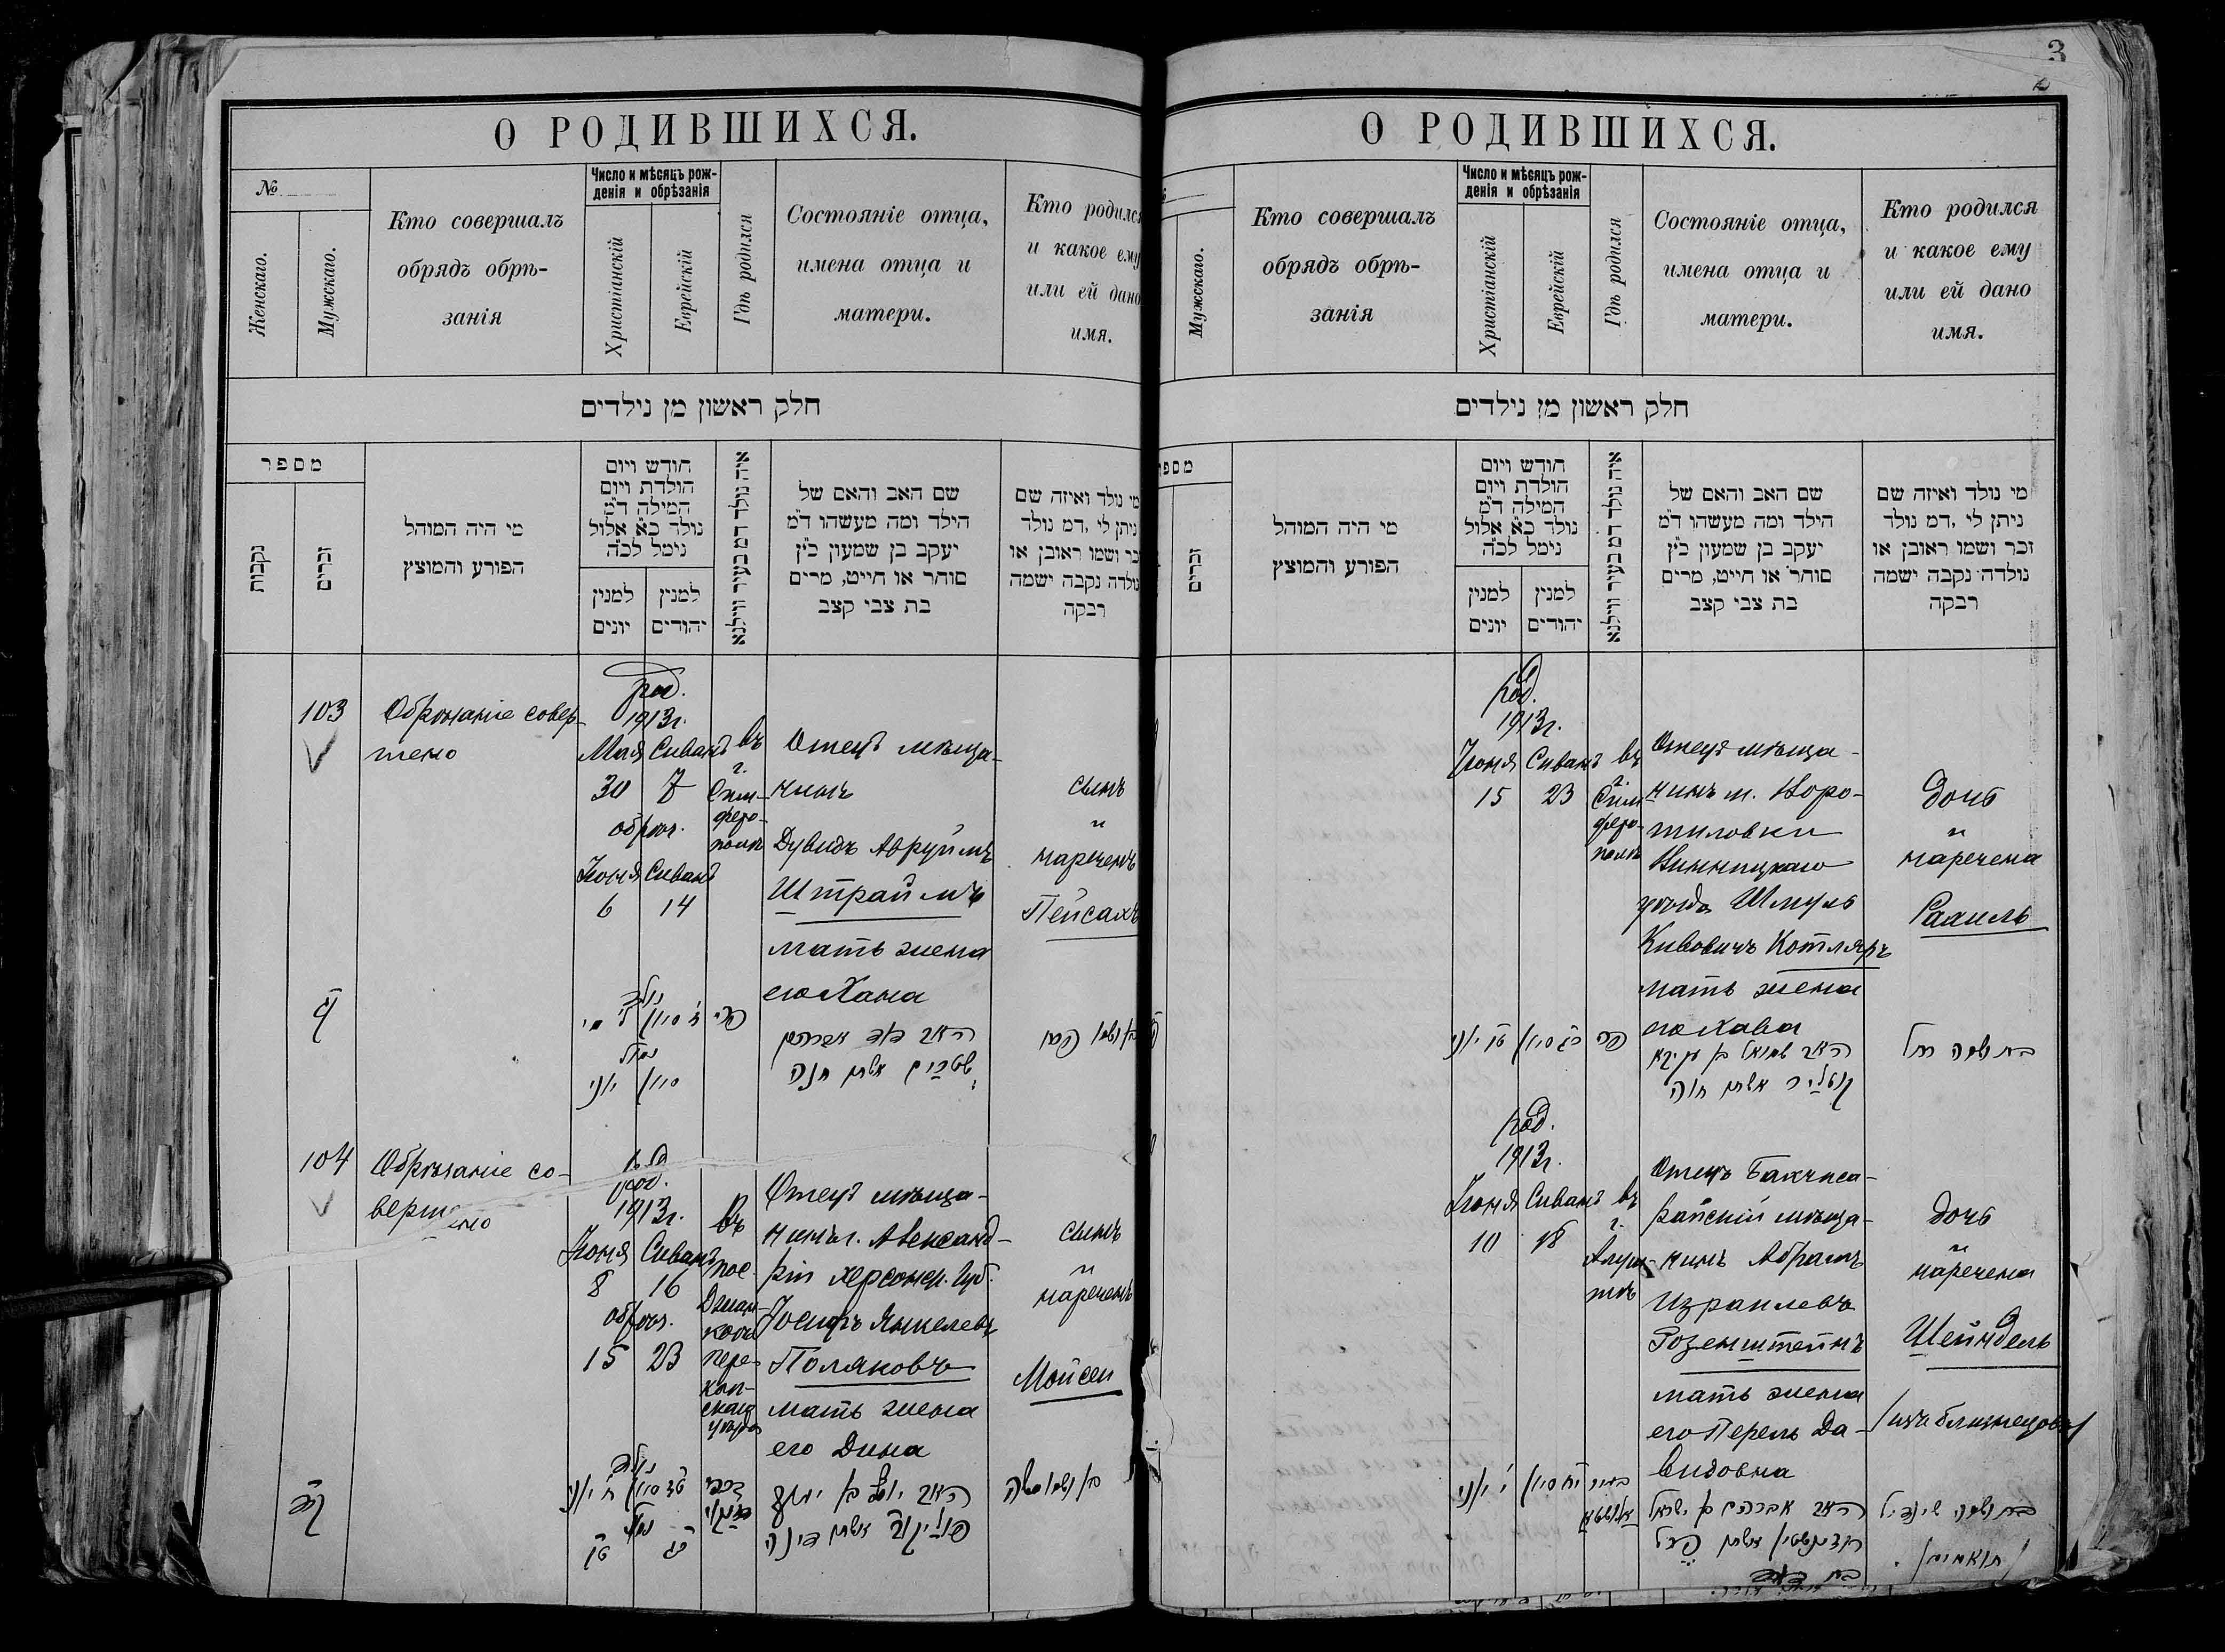 3
О РОДИВШИХСЯ.
№
Женскаго.
Мужскаго.
Кто совершалъ
обрядъ обрѣ-
занія
Число и мѣсяцъ рож-
денія и обрѣзанія
Христіанскій
Еврейскій
Гдѣ родился
Состояніе отца,
имена отца и
матери.
Кто родился
и какое ему
или ей дано
имя.
חלק ראשון מן נילדים
מספר
נקבות
זכרים
מי היה המוהל
הפורע והמוצץ
חודש ויום
הולדת ויום
המילה ד״מ
נולד כ״א אלול
נימל לכ״ה
למנין
יונים
למנין
יהודים
איה נולד דמ בעיר ווילנא
שם האב והאם של
הילד ומה מעשהו ד״מ
יעקב בן שמעון כ״ץ
סוחר או חייט, מרים
בת צבי קצב
מי נולד ואיזה שם
ניתן לי, דמ נולד
זכר ושמו ראובן או
נולדה נקבה ישמה
רבקה
103
Обрѣзаніе совер-
шено
род.
1913г.
Мая Сиванъ
30 7
обрѣз.
Іюня Сиванъ
6 14
въ
г.
Сим-
феро-
полѣ
Отецъ мѣща-
нинъ
Дувидъ Авруймъ
Штраймъ
мать жена
его Хана
сынъ
и
нареченъ
Пейсахъ
האב דוד אברהם
שטרים אשתו חנה
104
Обрѣзаніе со-
вершено
род.
1913г.
Іюня Сиванъ
8 16
обрѣз.
15 23
въ
пос.
Джан-
кой
Пере-
коп-
скаго
уѣзда
Отецъ мѣща-
нинъ г. Александ-
ріи Херсонск. губ.
Іосифъ Янкелевъ
Поляковъ
мать жена
его Дина
сынъ
и
нареченъ
Мойсей
האב יוסף בן יעקב
פוליקוב אשתו דינה
בן ושמו משה
О РОДИВШИХСЯ.
Мужскаго.
Кто совершалъ
обрядъ обрѣ-
занія
Число и мѣсяцъ рож-
денія и обрѣзанія
Христіанскій
Еврейскій
Гдѣ родился
Состояніе отца,
имена отца и
матери.
Кто родился
и какое ему
или ей дано
имя.
חלק ראשון מן נילדים
זכרים
מי היה המוהל
הפורע והמוצץ
חודש ויום
הולדת ויום
המילה ד״מ
נולד כ״א אלול
נימל לכ״ה
למנין
יונים
למנין
יהודים
איה נולד דמ בעיר ווילנא
שם האב והאם של
הילד ומה מעשהו ד״מ
יעקב בן שמעון כ״ץ
סוחר או חייט, מרים
בת צבי קצב
מי נולד ואיזה שם
ניתן לי, דמ נולד
זכר ושמו ראובן או
נולדה נקבה ישמה
רבקה
род.
1913г.
Іюня Сиванъ
15 23
въ
г.
Сим-
феро-
полѣ
Отецъ мѣща-
нинъ м. Воро-
шиловки
Винницкаго
уѣзда Шмуль
Кивовичъ Котляръ
мать жена
его Хава
дочь
и
наречена
Рахиль
האב שמואל בן עקיבא
קוטליר אשתו חוה
בת ושמה רחל
род.
1913г.
Іюня Сиванъ
10 18
въ
г.
Алуш-
тѣ
Отецъ Бахчиса-
райскій мѣща-
нинъ Абрамъ
Израилевъ
Розенштейнъ
мать жена
его Перель Да-
видовна
дочь
и
наречена
Шейндель
/изъ близнецовъ/
האב אברהם בן ישראל
רוזענשטיין אשתו פערל
בת ושמה שיינדיל
/תואמים/